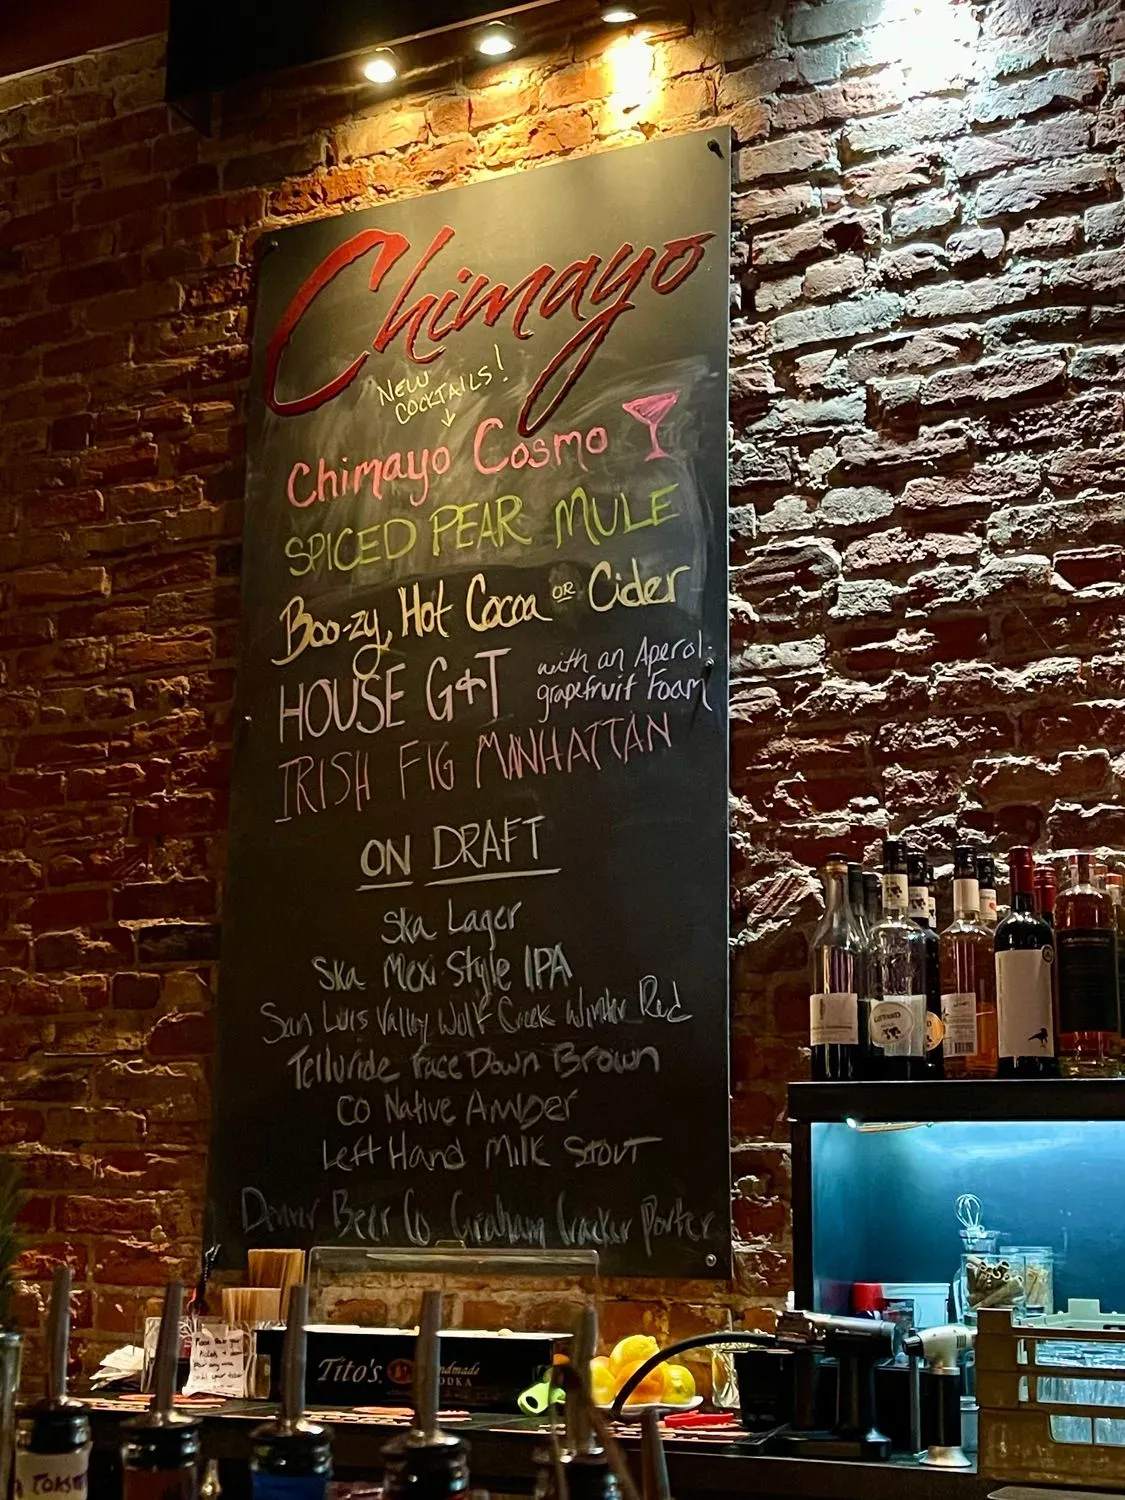 Chimayo
NEW
COCKTAILS!
Chimayo Cosmo
SPICED PEAR MULE
Boo-zy, Hot Cocoa OR Cider
HOUSE G&T with an Aperol-
grapefruit Foam
IRISH FIG MANHATTAN
ON DRAFT
Ska Lager
Ska Mexi Style IPA
San Luis Valley Wolf Creek Winter Red
Telluride Face Down Brown
CO Native Amber
Left Hand Milk Stout
Denver Beer Co Graham Cracker Porter
GIFFARD
Tito's Handmade
VODKA
TOAST